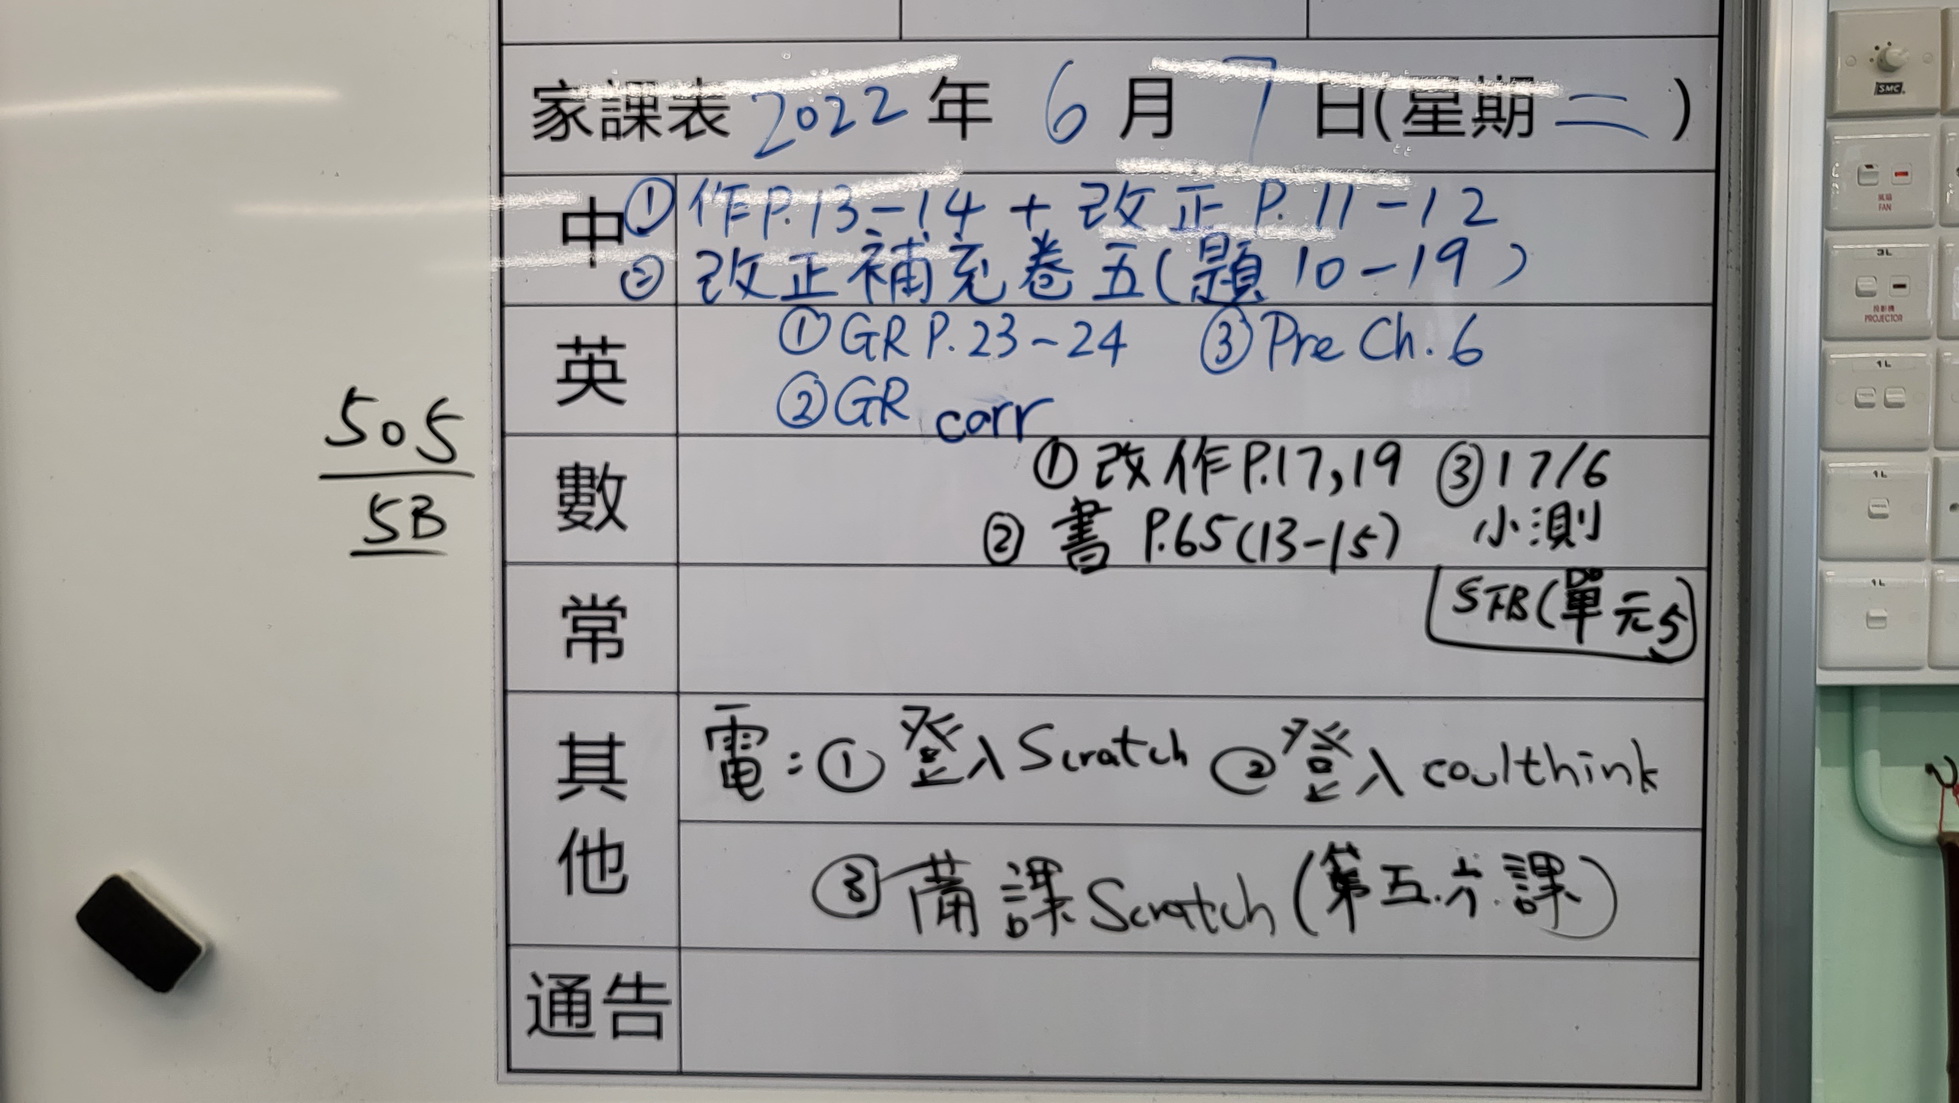 家課表 2022 年 6 月 7 日(星期二)
中 ① 作P.13-14 + 改正 P.11-12
② 改正補充卷五(題10-19)
英 ① GR P.23-24 ③ Pre Ch.6
② GR corr
505
5B
數 ① 改作P.17,19 ③ 17/6
② 書 P.65(13-15) 小測
常 STB(單元5)
其他
電:① 登入Scratch ② 登入coolthink
③ 備課Scratch(第五.六.課)
通告
SMC
風扇
FAN
3L
投影機
PROJECTOR
1L
1L
1L